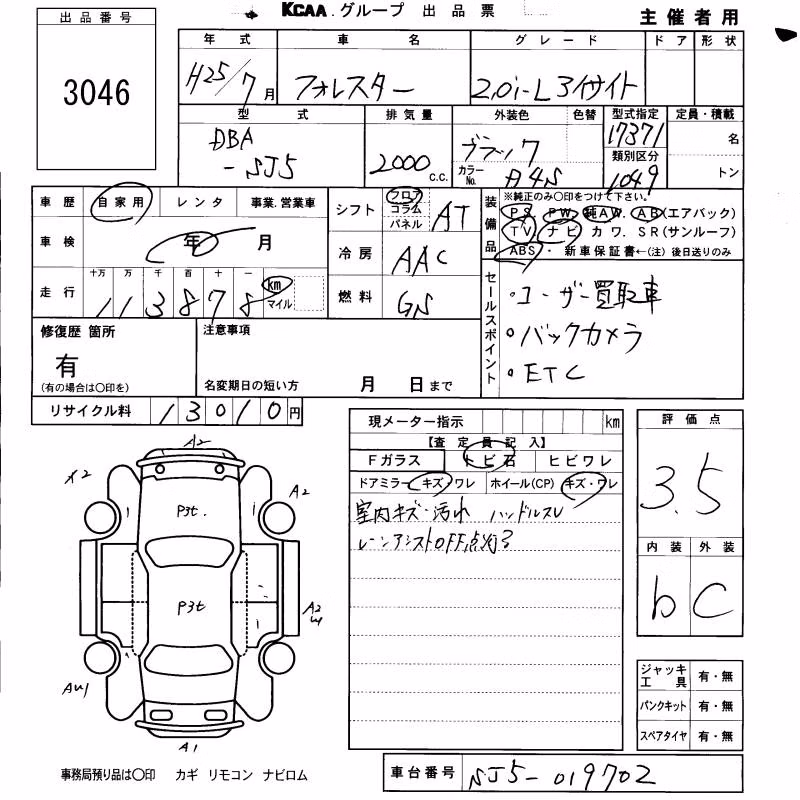 KCAA.グループ 出品票
主催者用
出品番号
3046
年式 車名 グレード ドア 形状
H25/7月 フォレスター 2.0i-L アイサイト
型式 排気量 外装色 色替 型式指定 定員・積載
DBA
-SJ5
2000 C.C.
ブラック
カラーNo. A4S
17371
類別区分
1049
名
トン
車歴 自家用 レンタ 事業.営業車
車検 年 月
走行 十万 万 千 百 十 一
113878 km マイル
シフト フロア コラム パネル AT
冷房 AAC
燃料 GS
装備品
※純正のみ〇印をつけて下さい。
PS. PW. 純AW. AB(エアバック)
TV. ナビ カワ. SR(サンルーフ)
ABS・新車保証書←(注)後日送りのみ
セールスポイント
・ユーザー買取車
・バックカメラ
・ETC
修復歴 箇所
有
(有の場合は〇印を)
注意事項
名変期日の短い方 月 日まで
リサイクル料 13010円
現メーター指示 km
【査定員記入】
Fガラス トビ石 ヒビワレ
ドアミラー キズ・ワレ ホイール(CP) キズ・ワレ
室内キズ・汚れ ハンドルスレ
レーンアシストOFF点灯る
評価点
3.5
内装 外装
b C
ジャッキ工具 有・無
パンクキット 有・無
スペアタイヤ 有・無
A2
X2
A2
P3t.
P3t
A2
W
AW1
A1
事務局預り品は〇印 カギ リモコン ナビロム
車台番号 SJ5-019702